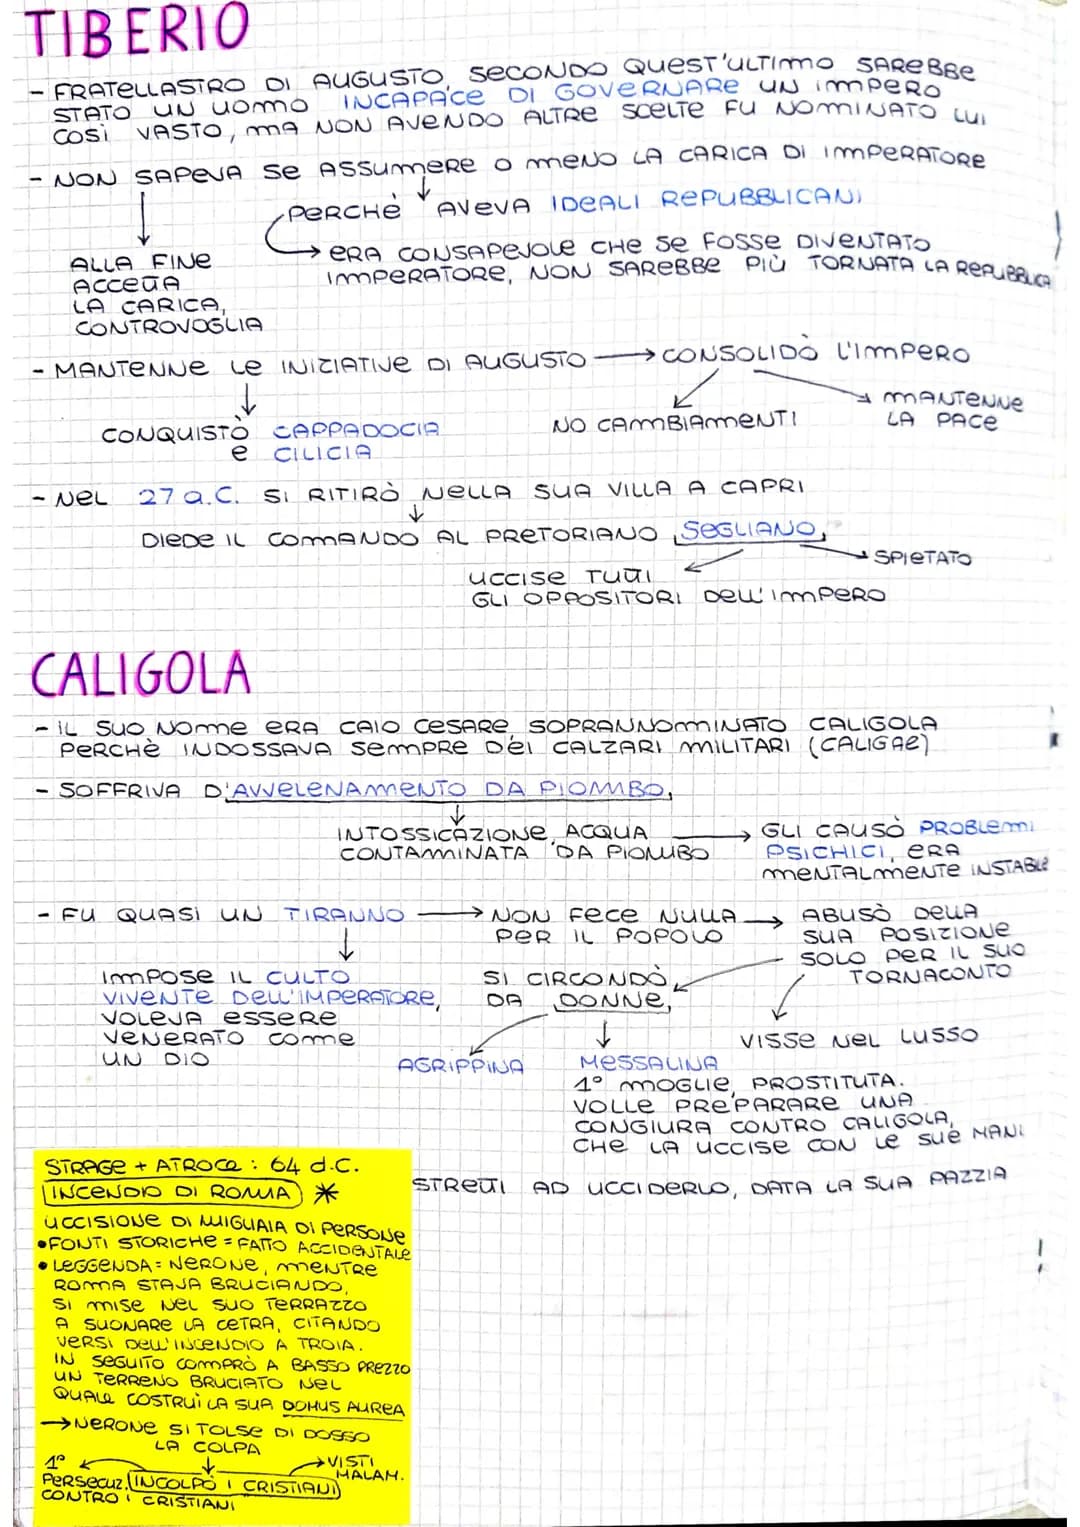 TIBERIO
- FRATELLASTRO DI AUGUSTO, SECONDO QUEST'ULTIMO SAREBBE
STATO UN UOMO INCAPACE DI GOVERNARE UN IMPERO
COSÌ VASTO, MA NON AVENDO ALTRE SCELTE FU NOMINATO LUI
- NON SAPEVA SE ASSUMERE O MENO LA CARICA DI IMPERATORE
PERCHÈ AVEVA IDEALI REPUBBLICANI
→ ERA CONSAPEVOLE CHE SE FOSSE DIVENTATO
IMPERATORE, NON SAREBBE PIÙ TORNATA LA REPUBBLICA
ALLA FINE
ACCETTA
LA CARICA,
CONTROVOGLIA
- MANTENNE LE INIZIATIVE DI AUGUSTO → CONSOLIDÒ L'IMPERO
MANTENNE
LA PACE
NO CAMBIAMENTI
CONQUISTÒ CAPPADOCIA
E CILICIA
- NEL 27 a.C. SI RITIRÒ NELLA SUA VILLA A CAPRI
DIEDE IL COMANDO AL PRETORIANO SEGLIANO,
SPIETATO
UCCISE TUTTI
GLI OPPOSITORI DELL'IMPERO
CALIGOLA
- IL SUO NOME ERA CAIO CESARE, SOPRANNOMINATO CALIGOLA
PERCHÈ INDOSSAVA SEMPRE DEI CALZARI MILITARI (CALIGAE)
- SOFFRIVA D'AVVELENAMENTO DA PIOMBO,
INTOSSICAZIONE, ACQUA
CONTAMINATA DA PIOMBO
→ GLI CAUSÒ PROBLEMI
PSICHICI, ERA
MENTALMENTE INSTABLE
- FU QUASI UN TIRANNO → NON FECE NULLA → ABUSÒ DELLA
PER IL POPOLO
SUA POSIZIONE
SOLO PER IL SUO
TORNACONTO
IMPOSE IL CULTO
VIVENTE DELL'IMPERATORE,
VOLEVA ESSERE
VENERATO COME
UN DIO
SI CIRCONDÒ
DA DONNE,
VISSE NEL LUSSO
AGRIPPINA
MESSALINA
1° MOGLIE, PROSTITUTA.
VOLLE PREPARARE UNA
CONGIURA CONTRO CALIGOLA,
CHE LA UCCISE CON LE SUE MANI
STRETTI AD UCCIDERLO, DATA LA SUA PAZZIA
STRAGE + ATROCE : 64 d.C.
INCENDIO DI ROMA *
UCCISIONE DI MIGLIAIA DI PERSONE
• FONTI STORICHE = FATTO ACCIDENTALE
• LEGGENDA = NERONE, MENTRE
ROMA STAVA BRUCIANDO,
SI MISE NEL SUO TERRAZZO
A SUONARE LA CETRA, CITANDO
VERSI DELL'INCENDIO A TROIA.
IN SEGUITO COMPRÒ A BASSO PREZZO
UN TERRENO BRUCIATO NEL
QUALE COSTRUÌ LA SUA DOMUS AUREA
→ NERONE SI TOLSE DI DOSSO
LA COLPA
INCOLPÒ I CRISTIANI
VISTI
MALAM.
1°
PERSECUZ.
CONTRO I CRISTIANI